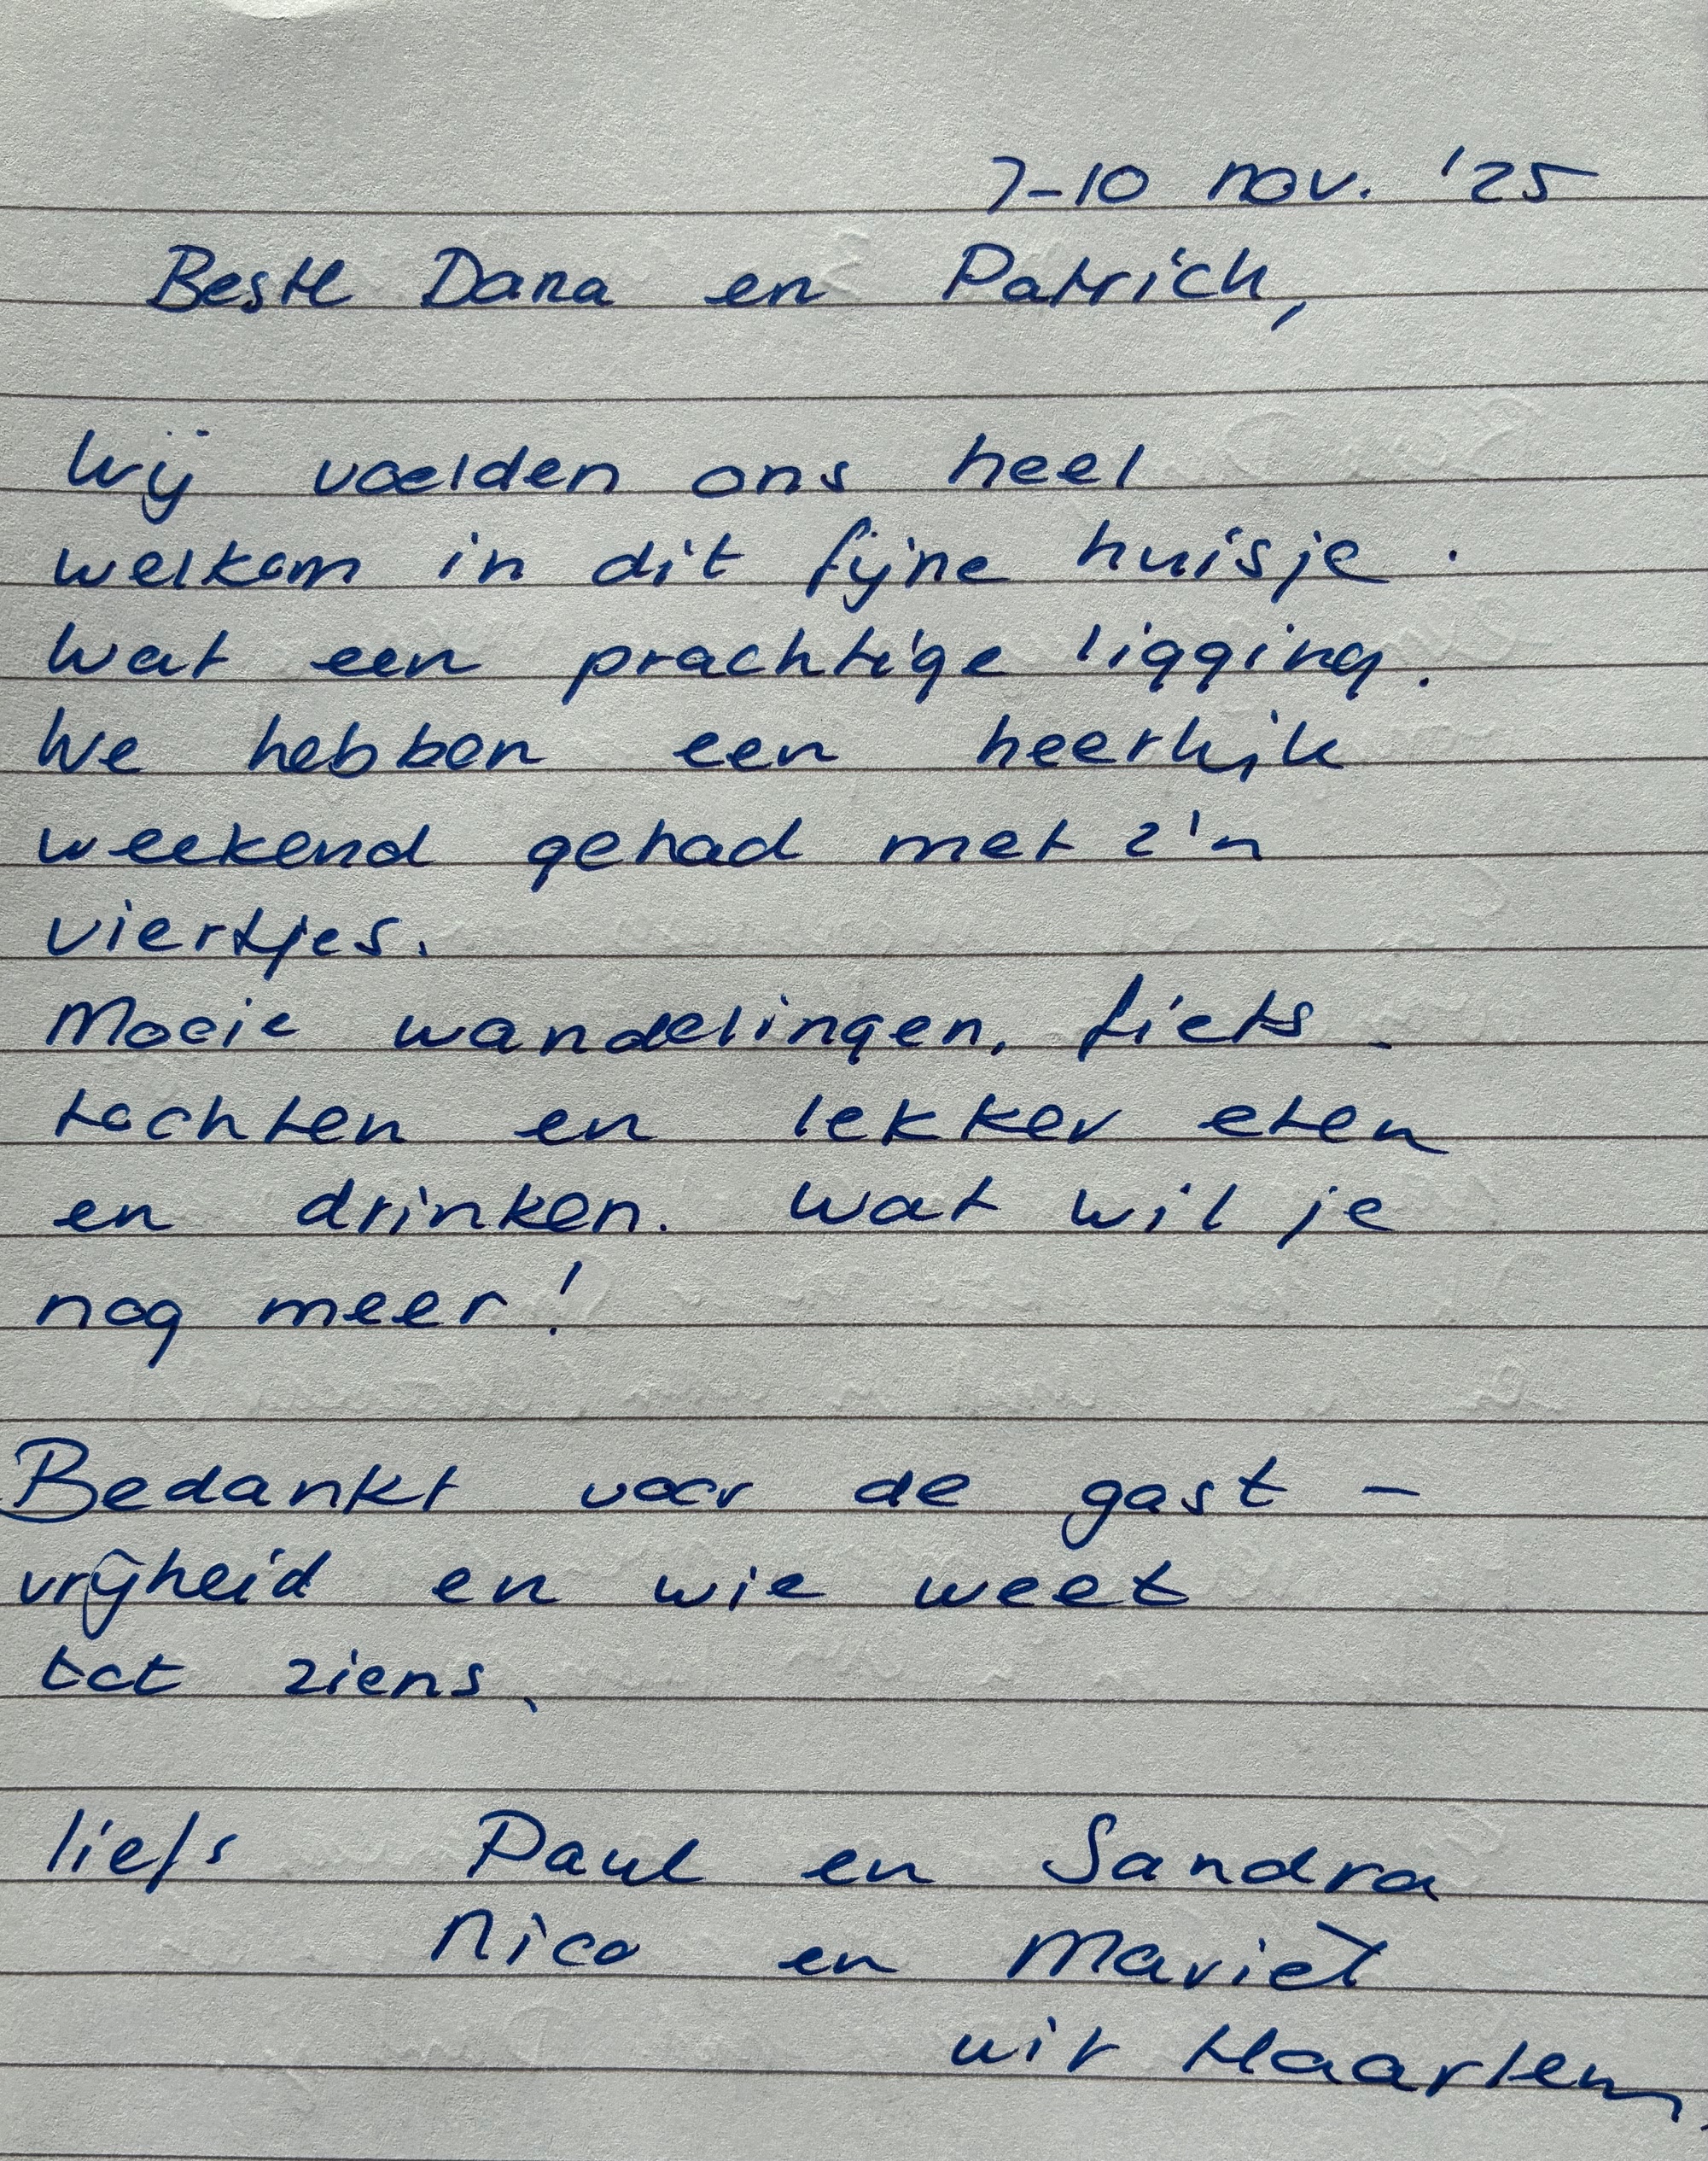 7-10 nov. '25
Beste Dana en Patrick,
Wij voelden ons heel
welkom in dit fijne huisje.
Wat een prachtige ligging.
We hebben een heerlijk
weekend gehad met z'n
viertjes.
Mooie wandelingen, fiets-
tochten en lekker eten
en drinken. Wat wil je
nog meer!
Bedankt voor de gast-
vrijheid en wie weet
tot ziens,
liefs Paul en Sandra
Nico en Mariet
uit Haarlem.